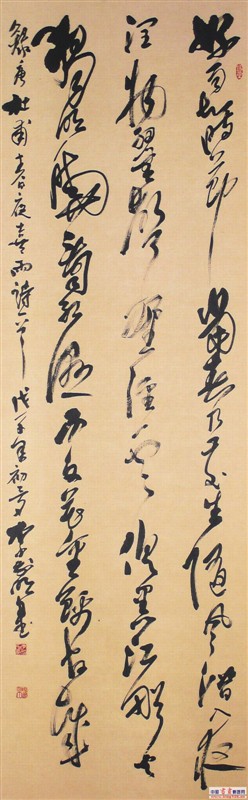 好雨知時節當春乃發生隨風潛入夜
潤物細無聲野徑雲俱黑江船火
獨明曉看紅濕處花重錦官城
錄唐杜甫春夜喜雨詩一首戊子年初夏